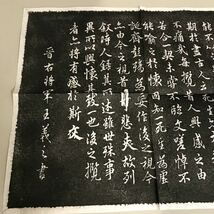 期於盡古人云死
不痛哉每攬昔人興感之由
若合一契未嘗不臨文嗟悼不
能喻之於懷固知一死生為虛
誕齊彭殤為妄作後之視今
亦由今之視昔悲夫故列
叙時人錄其所述雖世殊事
異所以興懷其致一也後之攬
者亦將有感於斯文
晉右將軍王羲之書